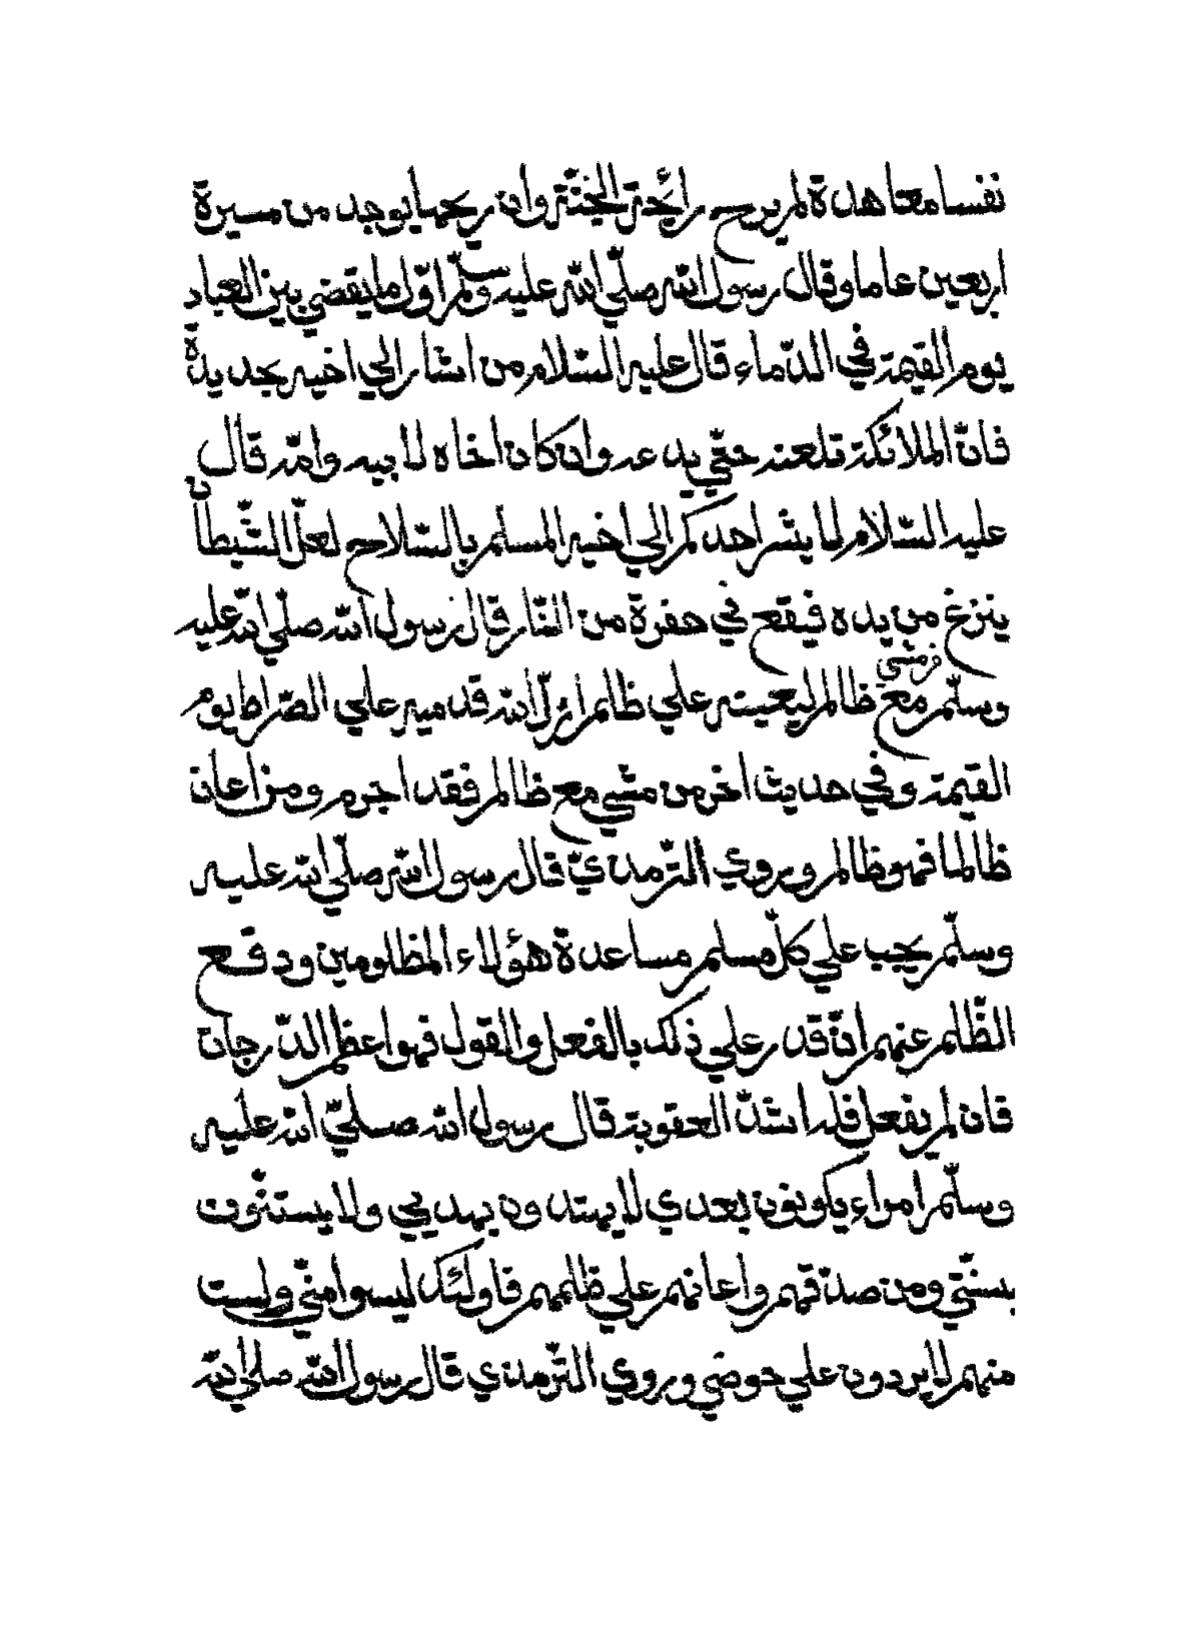 نفسا معاهدة لم يرح رائحة الجنّة وان ريحها يوجد من مسيرة
اربعين عاما وقال رسول اللّه صلّي اللّه عليه وسلّم اوّل ما يقضي بين العباد
يوم القيمة في الدّماء قال عليه السّلام من اشار الي اخيه بحديدة
فانّ الملائكة تلعنه حتّي يدعه وان كان اخاه لابيه وامّه قال
عليه السّلام لا يشر احدكم الي اخيه المسلم بالسّلاح لعلّ الشّيطان
ينزغ من يده فيقع في حفرة من النّار قال رسول اللّه صلّي اللّه عليه
وسلّم من مشي مع ظالم ليعينه علي ظلم ازلّ اللّه قدميه علي الصّراط يوم
القيمة وفي حديث اخر من مشي مع ظالم فقد اجرم ومن اعان
ظالما فهو ظالم وروي التّرمذيّ قال رسول اللّه صلّي اللّه عليه
وسلّم يجب علي كلّ مسلم مساعدة هؤلاء المظلومين ودفع
الظّلم عنهم انّ قدر علي ذلك بالفعل والقول فهو اعظم الدّرجات
فان لم يفعل فله اشدّ العقوبة قال رسول اللّه صلّي اللّه عليه
وسلّم امراء يكونون بعدي لا يهتدون بهديي ولا يستنّون
بسنّتي ومن صدقهم واعانهم علي ظلمهم فاولئك ليسوا منّي ولست
منهم لا يردون علي حوضي وروي التّرمذي قال رسول اللّه صلي اللّه